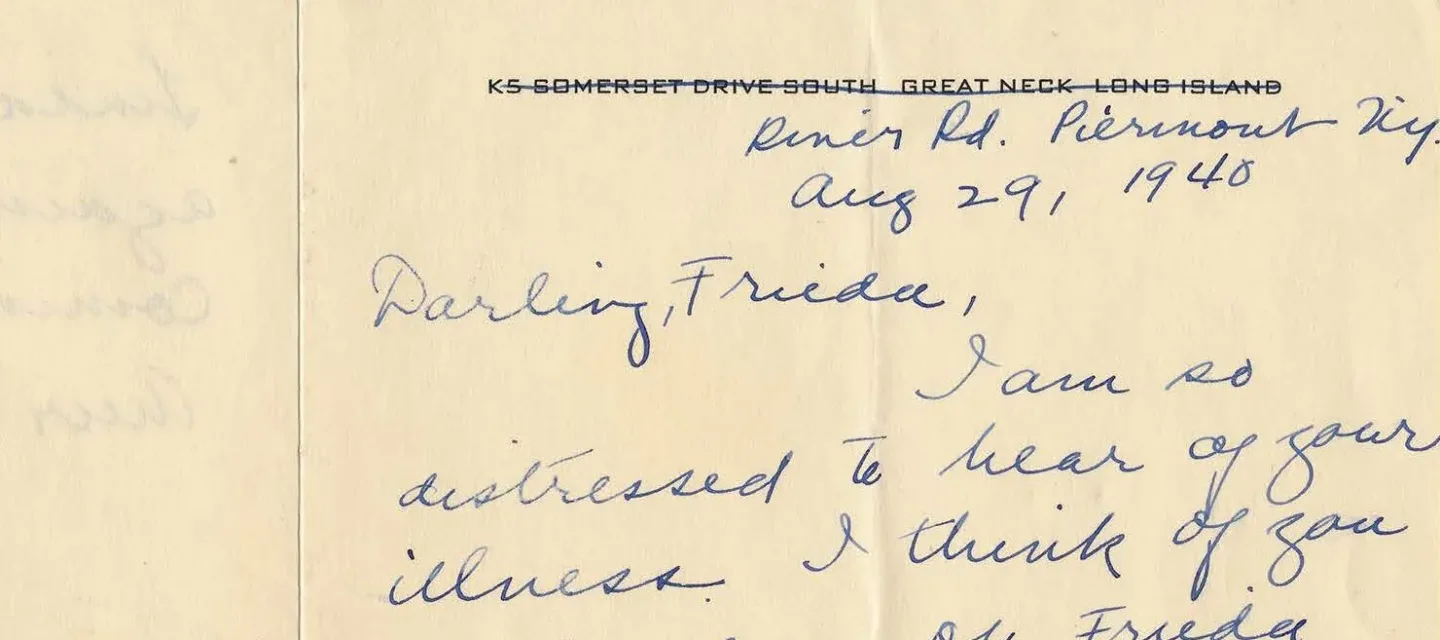 K5 SOMERSET DRIVE SOUTH GREAT NECK LONG ISLAND
River Rd. Piermont N.y.
Aug 29, 1940
Darling, Frieda,
I am so
distressed to hear of your
illness. I think of you
Frieda